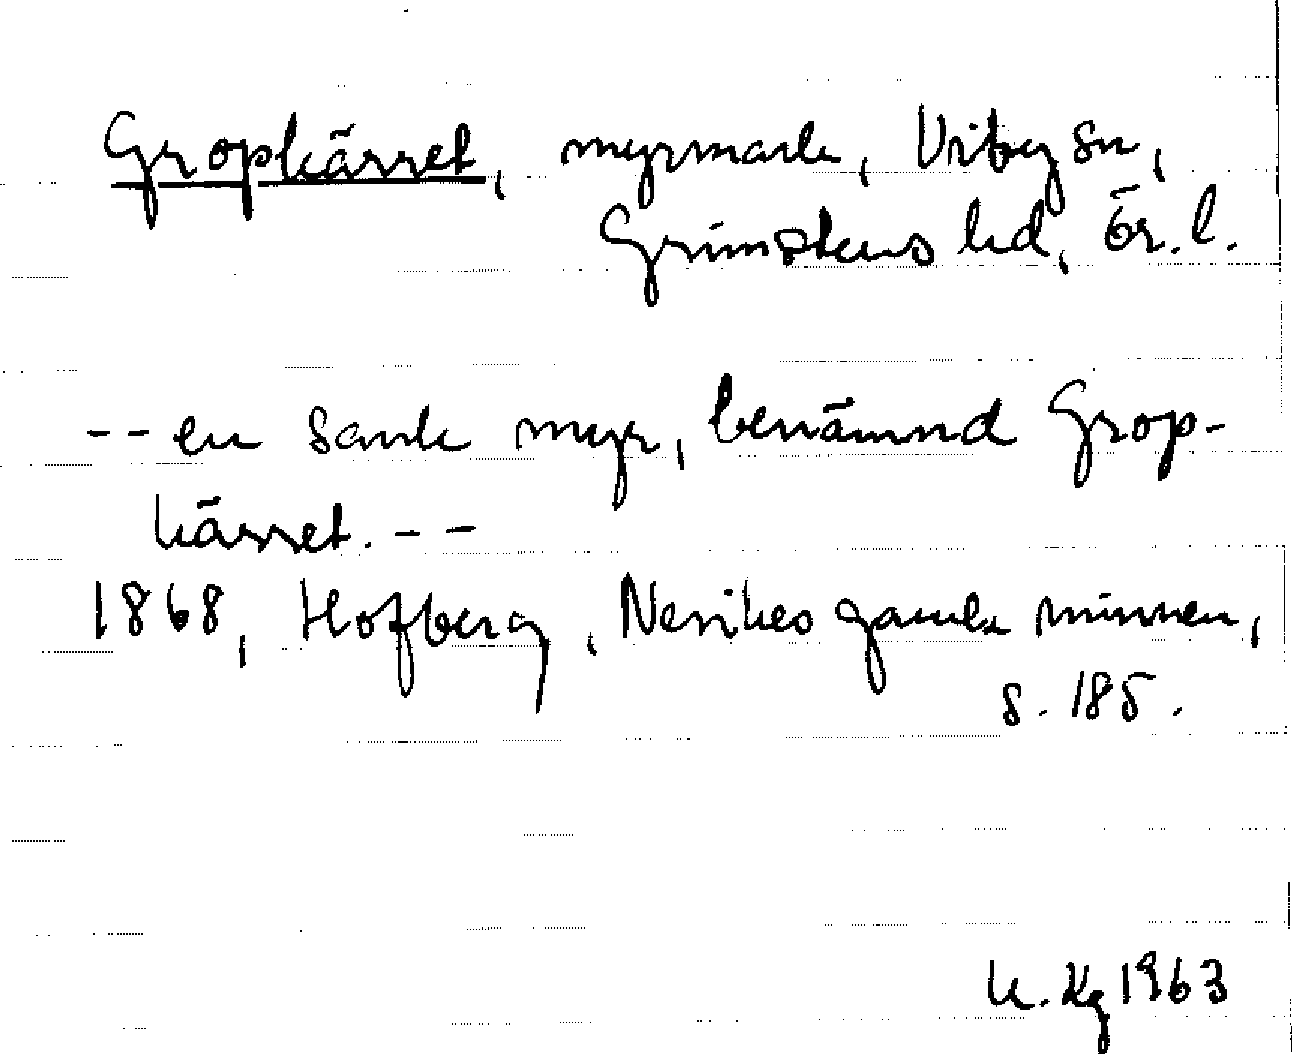 Gropkärret, myrmark, Viby sn,
Grimstens hd, Ör. l.
-- en sank myr, benämnd Grop-
kärret. --
1868, Hofberg, Nerikes gamla minnen,
s. 185.
1963